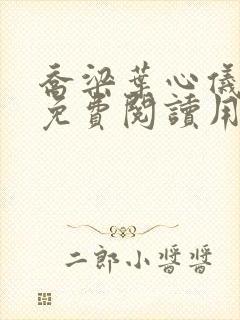 喬梁葉心儀
免費閱讀用
二郎小醬醬